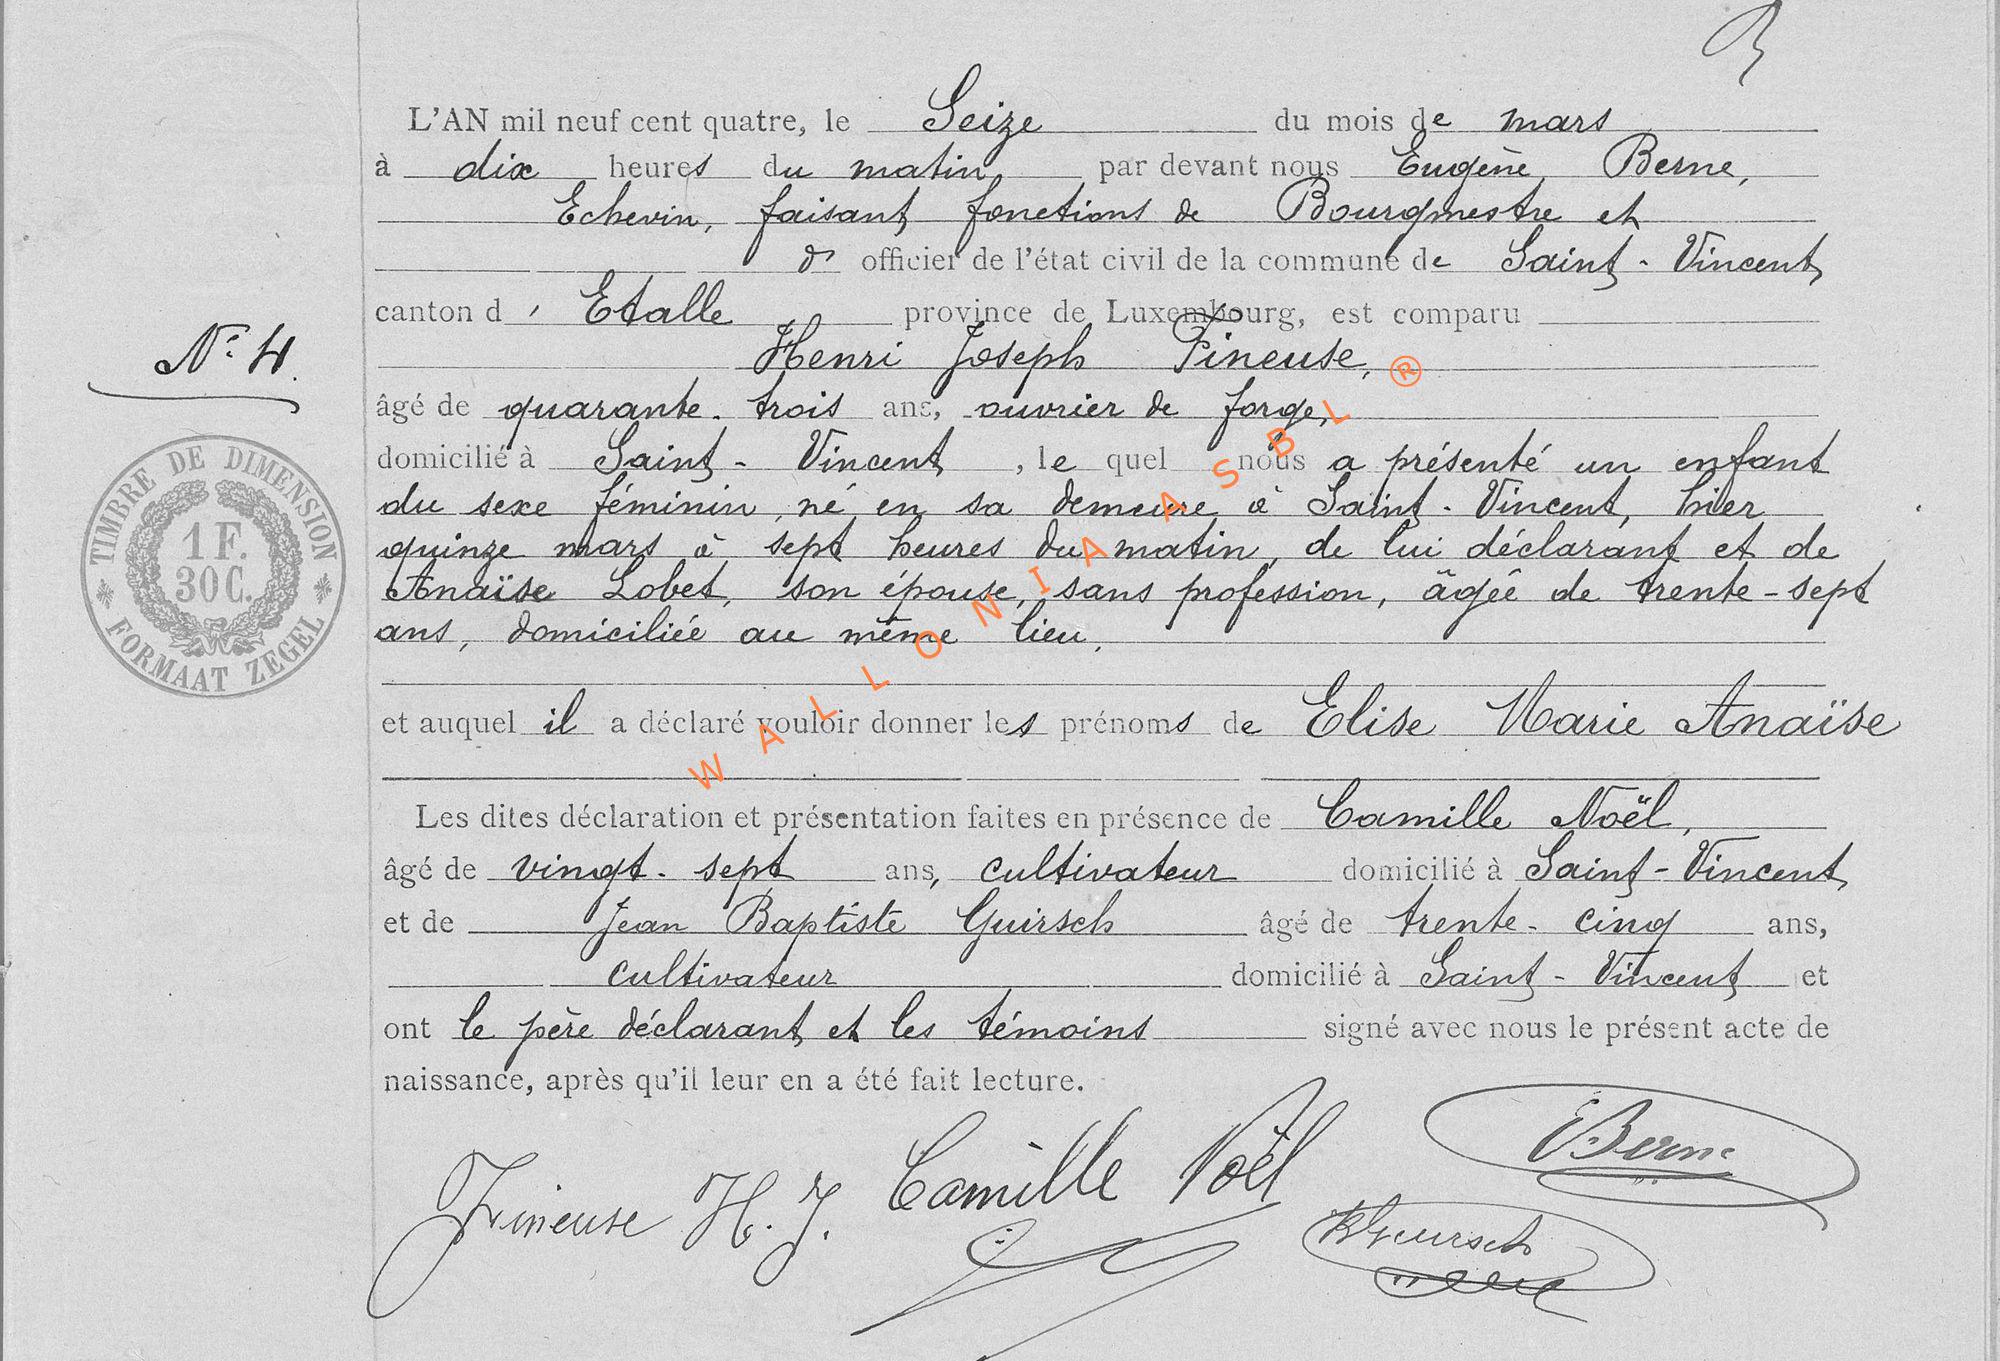 L'AN mil neuf cent quatre, le Seize du mois de mars
à dix heures du matin par devant nous Eugène Berne,
Echevin, faisant fonctions de Bourgmestre et
officier de l'état civil de la commune de Saint-Vincent
canton d'Etalle province de Luxembourg, est comparu
Henri Joseph Fineuse,
âgé de quarante-trois ans, ouvrier de forge,
domicilié à Saint-Vincent, lequel nous a présenté un enfant
du sexe féminin, né en sa demeure à Saint-Vincent, hier
quinze mars à sept heures du matin, de lui déclarant et de
Anaïse Lobet, son épouse, sans profession, âgée de trente-sept
ans, domiciliée au même lieu,
et auquel il a déclaré vouloir donner les prénoms de Elise Marie Anaïse
Les dites déclaration et présentation faites en présence de Camille Noël,
âgé de vingt-sept ans, cultivateur domicilié à Saint-Vincent
et de Jean Baptiste Guirsch âgé de trente-cinq ans,
cultivateur domicilié à Saint-Vincent et
ont le père déclarant et les témoins signé avec nous le présent acte de
naissance, après qu'il leur en a été fait lecture.
Fineuse H. J. Camille Noël
EBerne
Guirsch
N° 4
TIMBRE DE DIMENSION
1 F.
30 C.
FORMAAT ZEGEL
WALLONIA ASBL ®